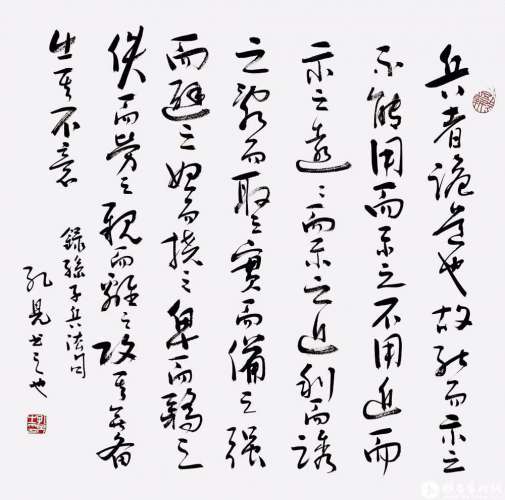 兵者詭道也故能而示之
不能用而示之不用近而
示之遠〻而示之近利而誘
之亂而取之實而備之强
而避之怒而撓之卑而驕之
佚而勞之親而離之攻其無备
出其不意
錄孫子兵法句
孔見书之也